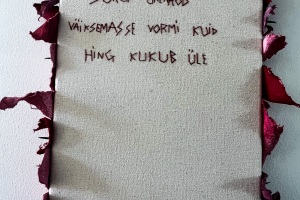 VÄIKSEMASSE VORMI KUID
HING KUKUB ÜLE